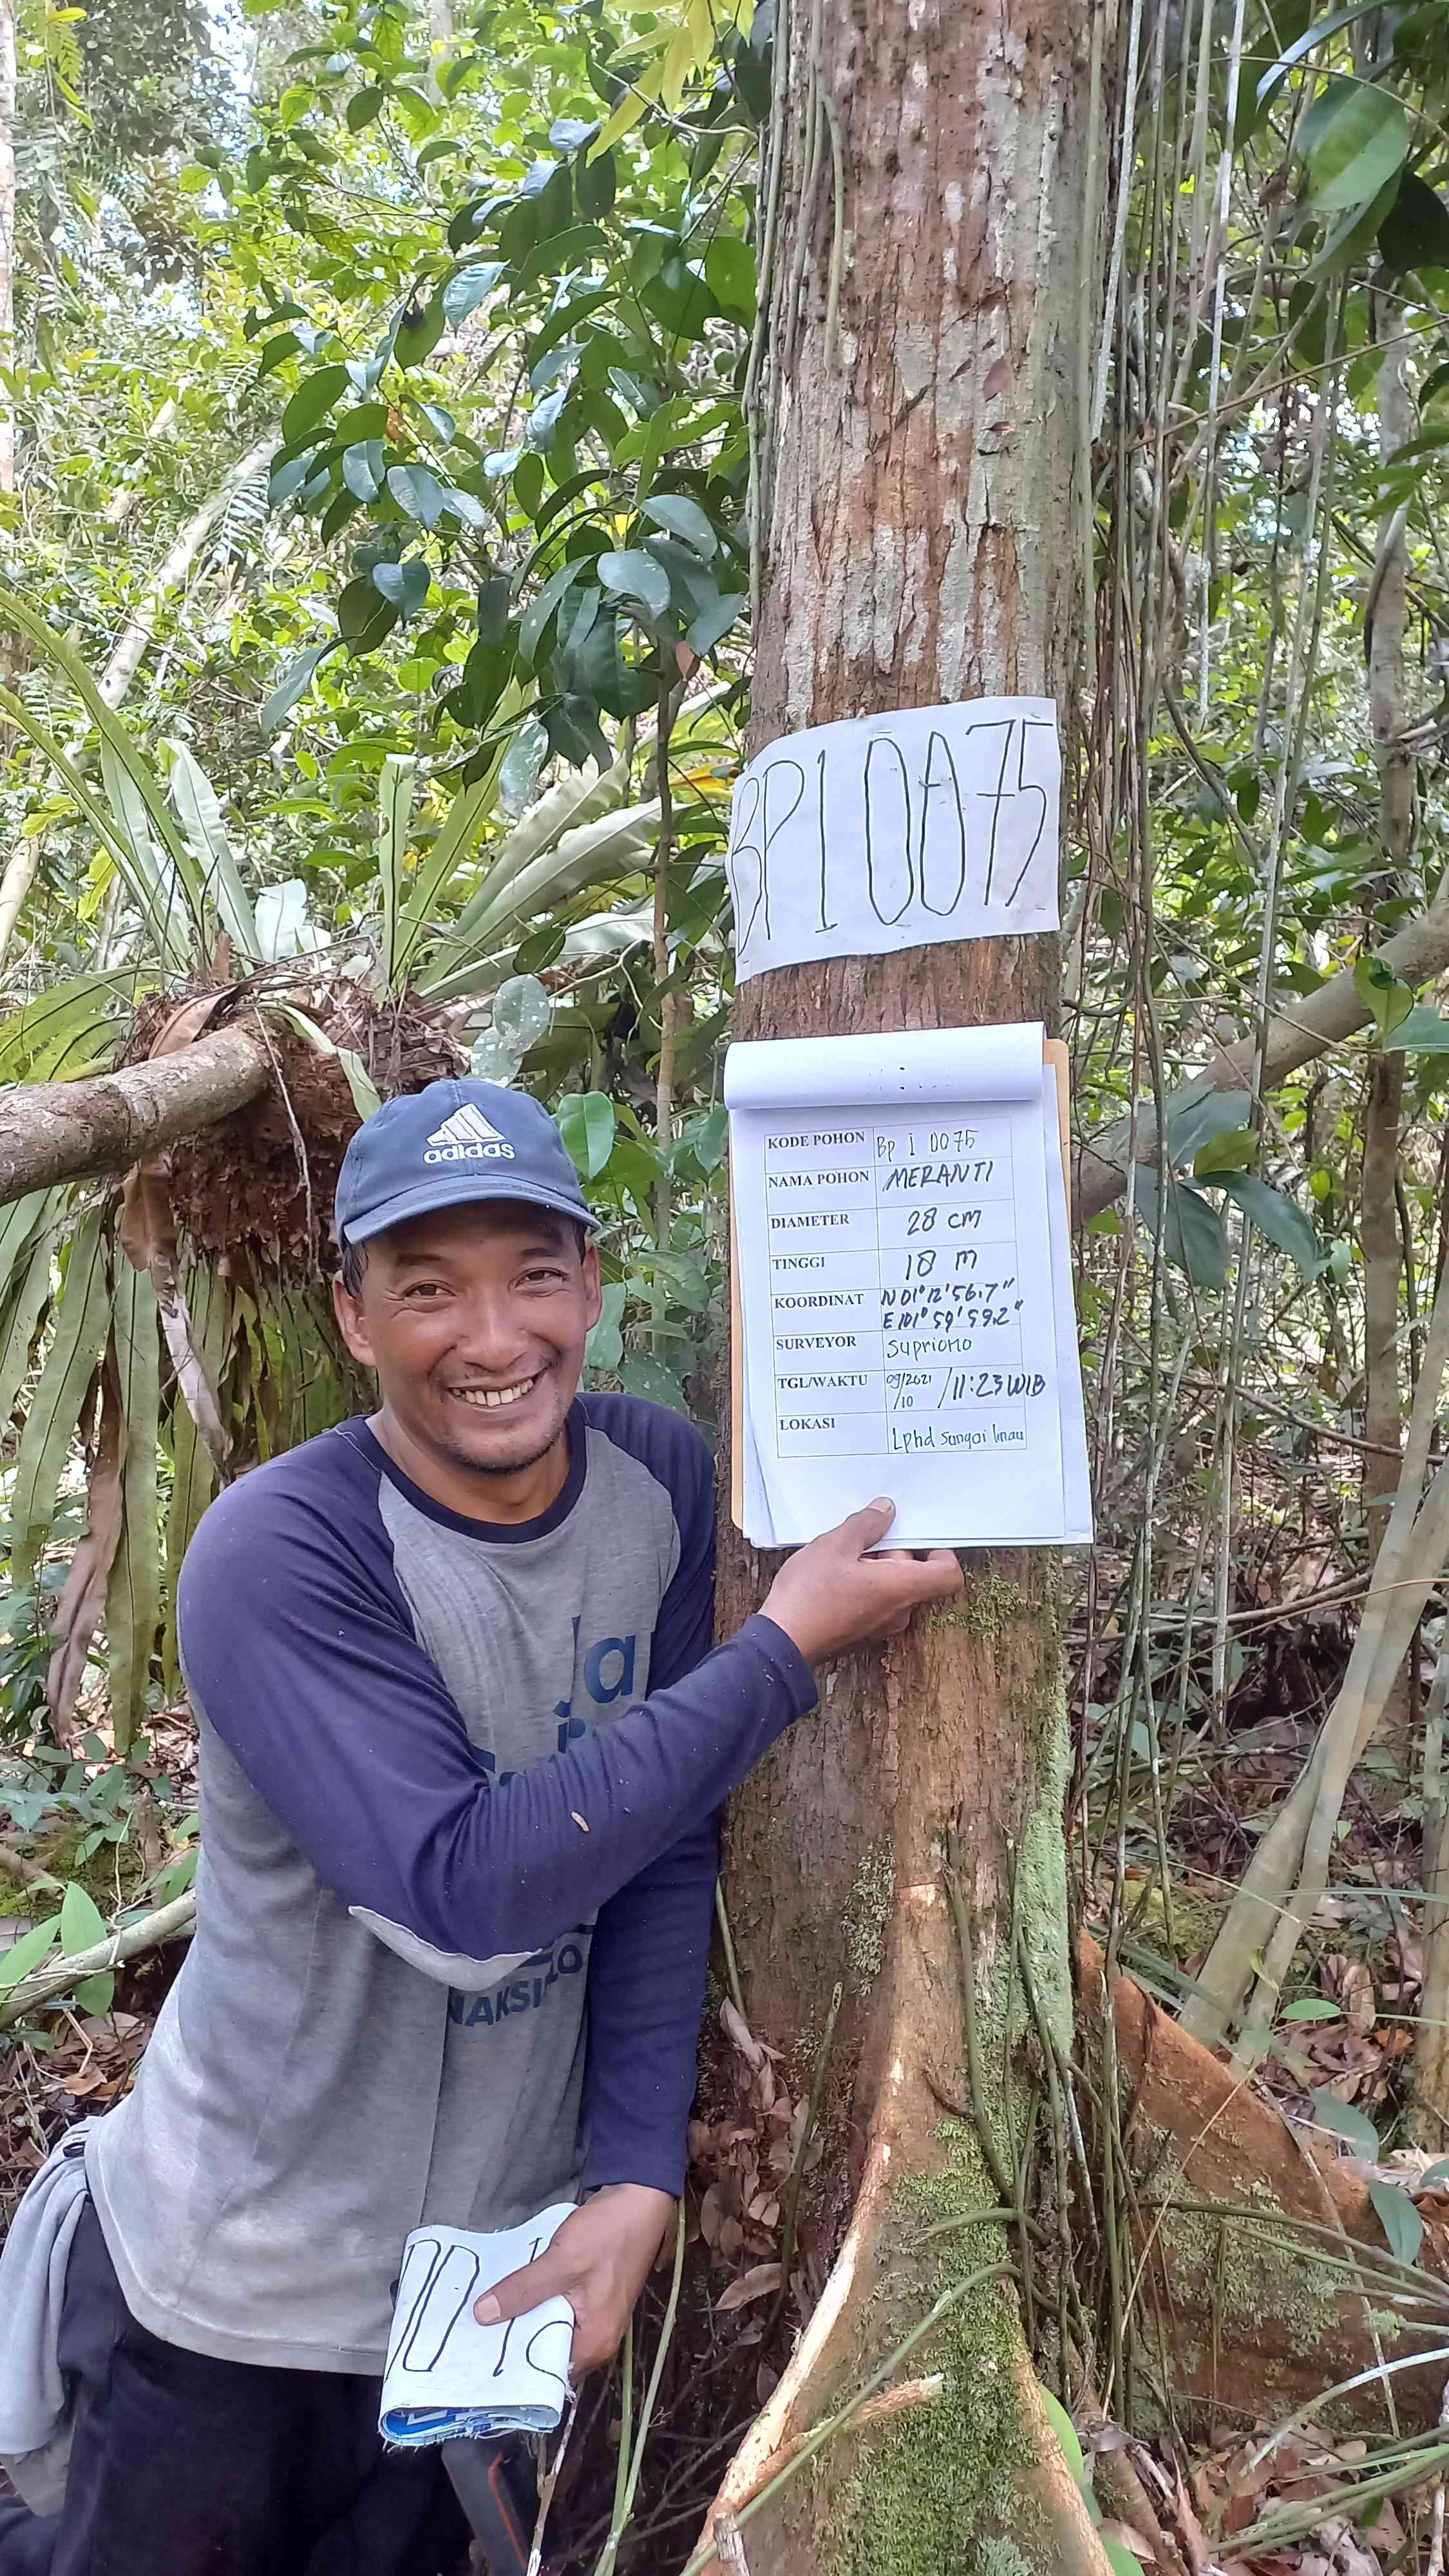 BPI 0075
KODE POHON Bp I 0075
NAMA POHON MERANTI
DIAMETER 28 CM
TINGGI 18 M
KOORDINAT N 01° 12' 56.7"
E 101° 59' 59.2"
SURVEYOR Supriono
TGL/WAKTU 09/2021 /10 / 11:23 WIB
LOKASI Lphd Sungai linau
adidas